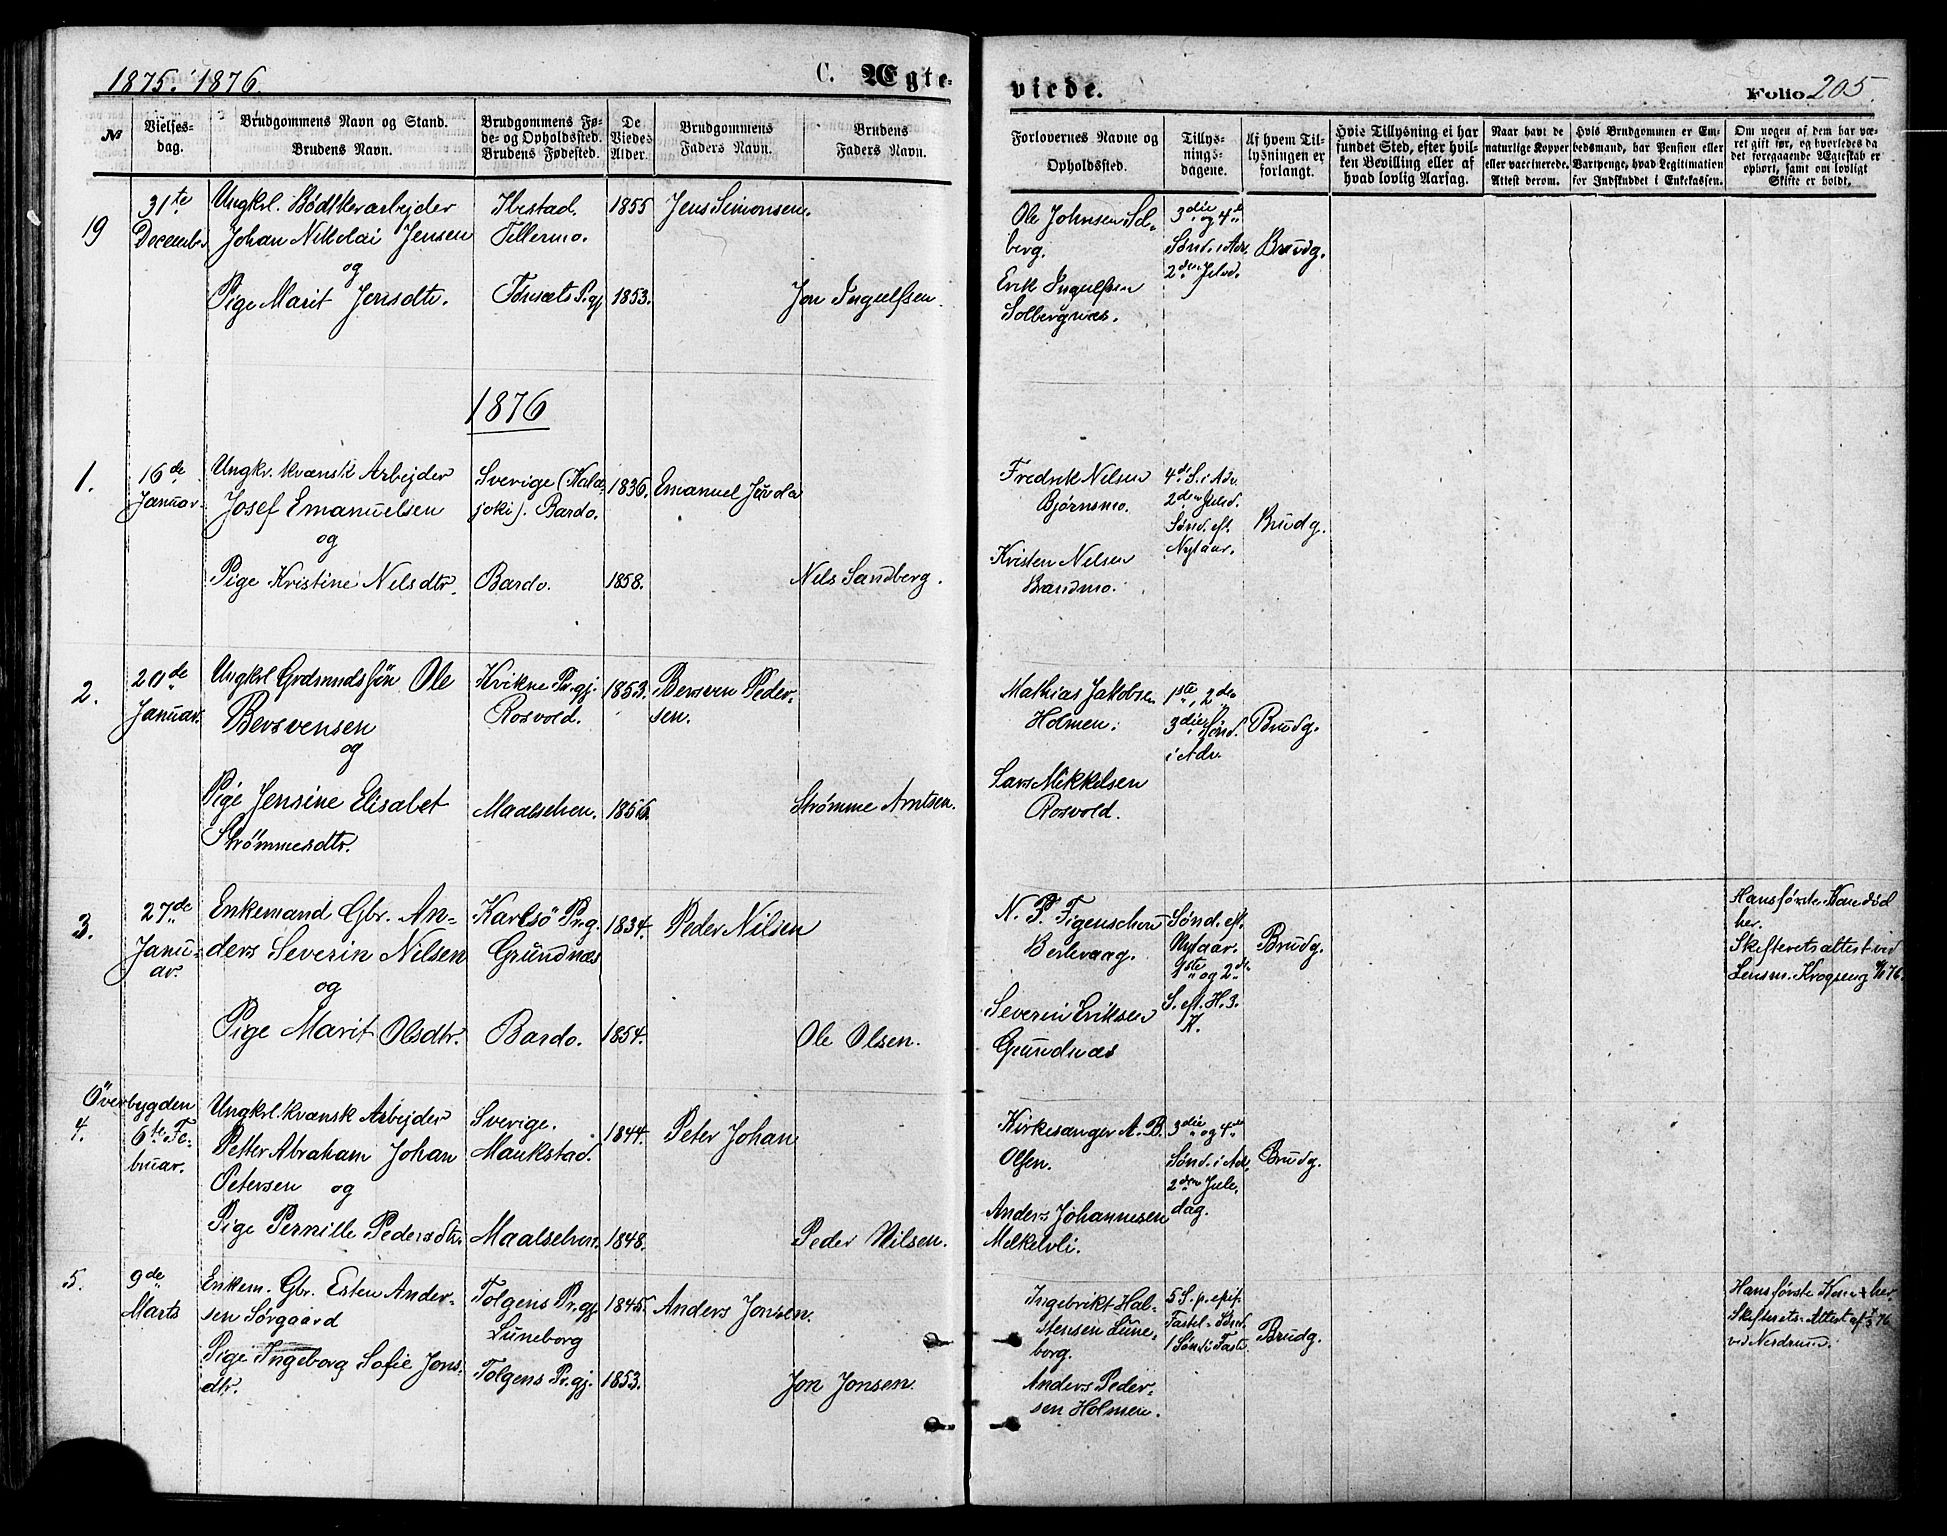 1875. 1876.
C. Ægte-
virde.
Folio 205.
№
Vielses-
dag.
Brudgommens Navn og Stand.
Brudens Navn.
Brudgommens Fø-
de- og Opholdssted.
Brudens Fødested.
De
Viedes
Alder.
Brudgommens
Faders Navn.
Brudens
Faders Navn.
Forlovernes Navne og
Opholdssted.
Tillys-
nings-
dagene.
Af hvem Til-
lysningen er
forlangt.
Hvis Tillysning ei har
fundet Sted, efter hvil-
ken Bevilling eller af
hvad lovlig Aarsag.
Naar havt de
naturlige Kopper
eller vaccinerede.
Attest derom.
Hvis Brudgommen er Em-
bedsmand, har Pension eller
Vartpenge, hvad Legitimation
for Indskuddet i Enkekassen.
Om nogen af dem har væ-
ret gift før, og hvorledes da
det foregaaende Ægteskab er
ophørt, samt om lovligt
Skifte er holdt.
19
31te
December
Ungkrl. Bødtkerarbejder
Johan Nikolai Jensen
og
Pige Marit Jonsdtr.
Ibestad.
Tillermo.
Tønsets Pr.gj
1855
1853.
Jens Simonsen.
Jon Ingulfsen.
Ole Johnsen Sol-
berg.
Erik Ingulfsen
Solbergnæs.
3die og 4de
Sønd. i Adv.
2den Juled.
Brudg.
1876
1.
16de
Januar.
Ungkr. kvænsk Arbejder
Josef Emanuelsen
og
Pige Kristine Nilsdtr.
Sverige (Kala-
joki). Bardo.
Bardo.
1836.
1858.
Emanuel
Nils Sandberg.
Fredrik Nilsen
Bjørnsmo.
Kristen Nilsen
Brandmo.
4de S. i Adv.
2den Juled.
Sønd. eft.
Nytaar.
Brudg.
2.
20de
Januar.
Ungkrl Grdmndsføn Ole
Bersvensen
og
Pige Jensine Elisabet
Strømmesdtr.
Kvikne Pr.gj.
Rosvold.
Maalselven.
1853.
1856.
Bersven Peder-
sen.
Strømme Arntsen.
Mathias Jakobsen
Holmen.
Lars Mikkelsen
Rosvold.
1ste, 2den
3die Sønd.
i Adv.
Brudg.
3.
27de
Janu-
ar.
Enkemand Gbr. An-
ders Severin Nilsen
og
Pige Marit Olsdtr.
Karlsö Pr.g.
Grundnæs
Bardo.
1834.
1854.
Peder Nilsen
Ole Olsen.
N. P. Figenschou
Berlevaag.
Severin Eriksen
Grundnæs
Sønd. eft.
Nytaar.
1ste og 2den
S. eft. H. 3.
K.
Brudg.
Hans første Kone død
her.
Skifteretsattest ved
Lensm. Krogseng 76.
Överbygden
4.
6te Fe-
bruar.
Ungkrl. kvænsk Arbejder
Petter Abraham Johan
Petersen og
Pige Pernille Pedersdtr.
Sverige.
Maukstad.
Maalselven.
1844.
1848.
Peter Johan
Peder Nilsen.
Kirkesanger A. B.
Olsen.
Anders Johannesen
Melkelvli.
3die og 4de
Sønd. i Adv.
2den Jule-
dag.
Brudg.
5.
9de
Marts
Enkem. Gbr. Esten Ander-
sen Sørgaard
Pige Ingeborg Sofie Jons-
dtr.
Tolgens Pr.gj.
Luneborg
Tolgens Pr.gj.
1845.
1853.
Anders Jonsen.
Jon Jonsen.
Ingebrikt Hal-
stensen Lune-
borg.
Anders Peder-
sen Holmen.
5 S. p. epif.
Fastel. Sønd.
1 Sønd i Faste
Brudg.
Hans første Kone + her.
Skifterets-Attest af 76
ved Nordrum.